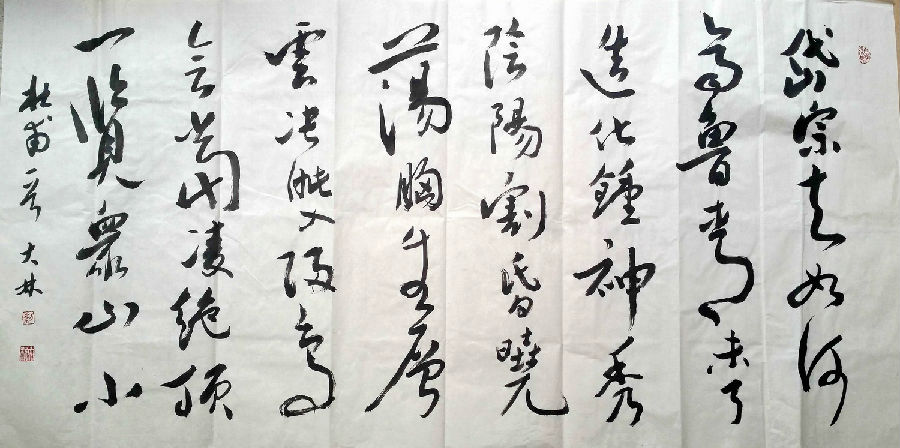 岱宗夫如何
齊魯青未了
造化鍾神秀
陰陽割昏曉
蕩胸生層
雲决眦入歸鳥
會當凌絶頂
一覽眾山小
杜甫 大林